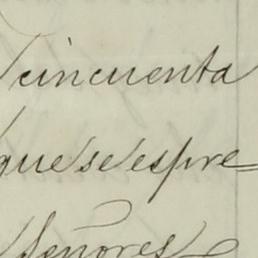 cincuenta
que se espre=
Señores